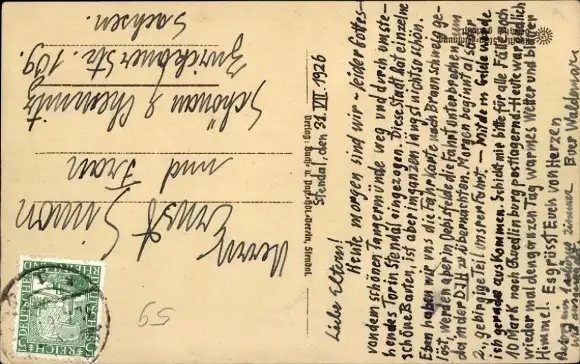 Stendal, den 31. VII. 1926
Liebe Eltern!
Heute morgen sind wir - leider Gottes-
von dem schönen Tangermünde weg und durch uns ste-
hendes Tor in Stendal eingezogen. Diese Stadt hat einzelne
schöne Bauten, ist aber im ganzen längst nicht so schön.
Eben haben wir uns die Fahrkarte nach Braunschweig ge-
löst, werden aber in Oebisfelde die Fahrt unterbrechen, um
da in der D.J.H. zu übernachten. Morgen beginnt also der
2., gebirgige Teil unsrer Fahrt. - Mit dem Gelde würde
ich gerade auskommen. Schickt mir bitte für alle Fälle noch
10 Mark nach Quedlinburg postlagernd. - Heute war endlich
wieder mal den ganzen Tag warmes Wetter und blauer
Himmel. Es grüsst Euch von Herzen
Euer Waldemar
Herrn Ernst Simon
und Frau
Schönau b/ Chemnitz
Zwickauer Str. 109.
Sachsen.
59
DEUTSCHES REICH